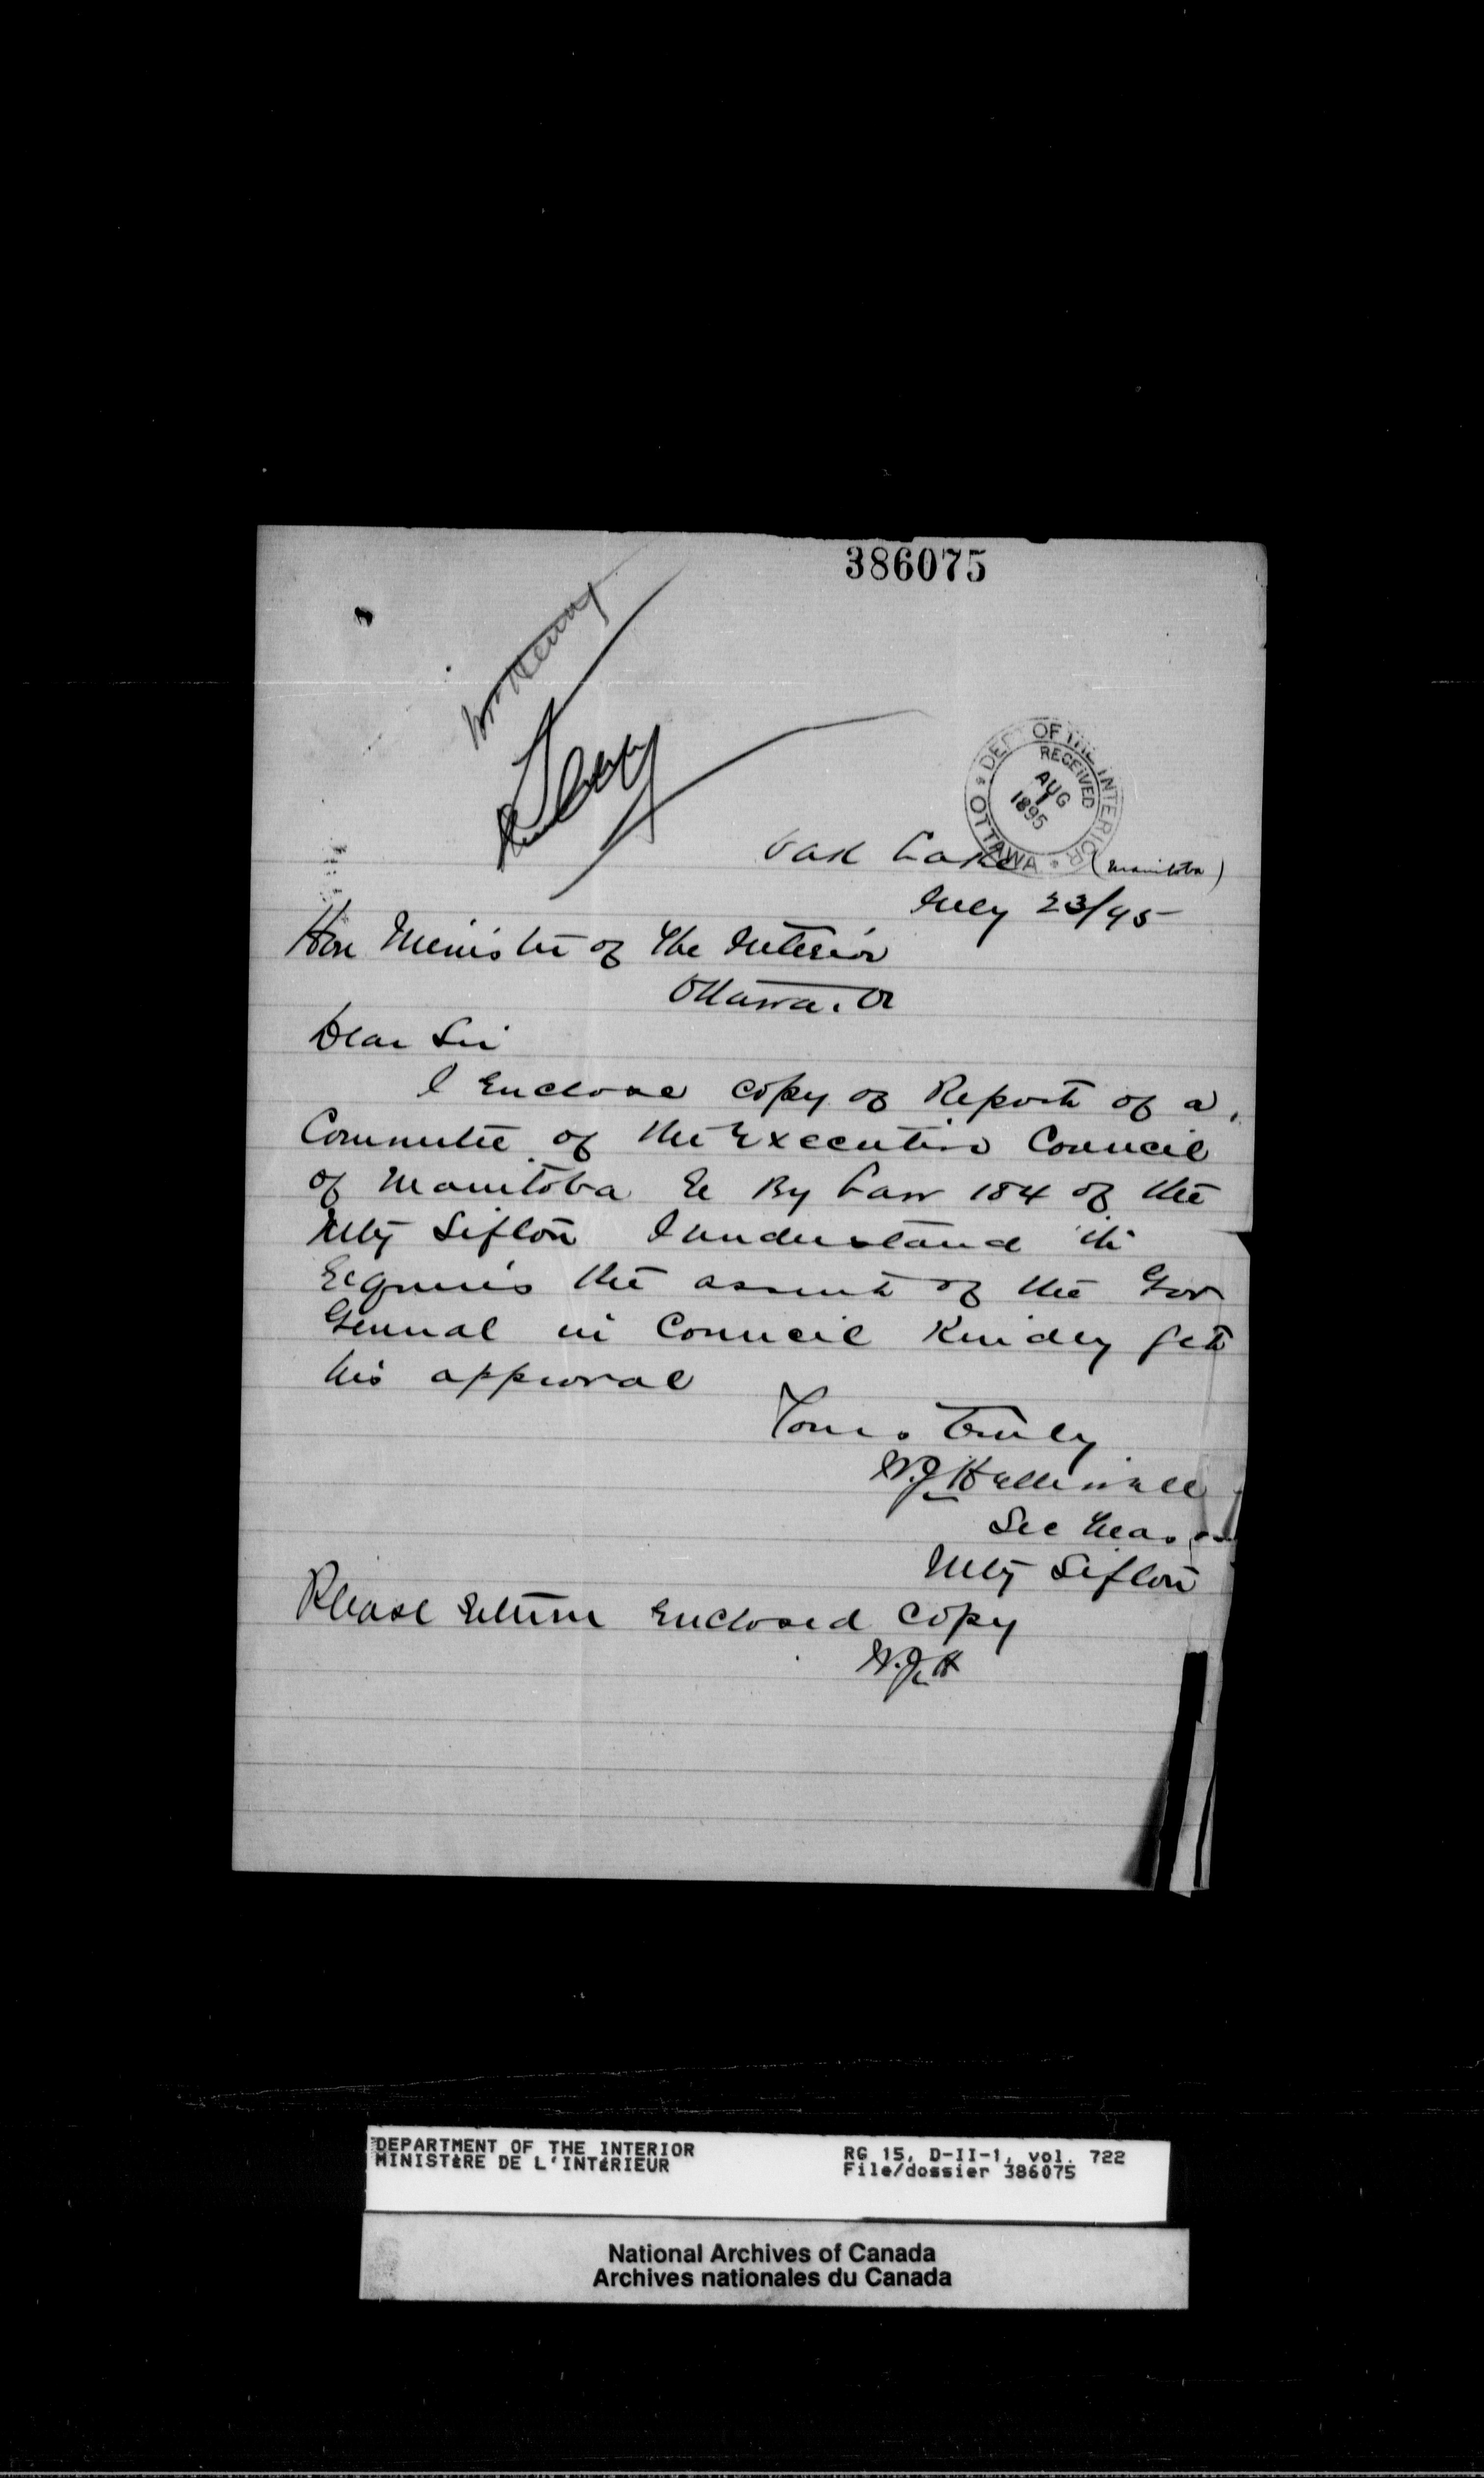 386075
Mr Henry
DEPT OF THE INTERIOR
RECEIVED
AUG
1
1895
OTTAWA
Oak Lake (Manitoba)
July 23/95
Hon Minister of the Interior
Ottawa. O
Dear Sir
I Enclose copy of Report of a
Committee of the Executive Council
of Manitoba re By Law 184 of the
Mty Sifton I understand it
requires the assent of the Gov
General in Council Kindly get
his approval
Yours Truly
W.J. Helliwell
Sec Treas
Mty Sifton
Please return Enclosed copy
W.J.H
DEPARTMENT OF THE INTERIOR
MINISTèRE DE L'INTéRIEUR
RG 15, D-II-1, vol. 722
File/dossier 386075
National Archives of Canada
Archives nationales du Canada